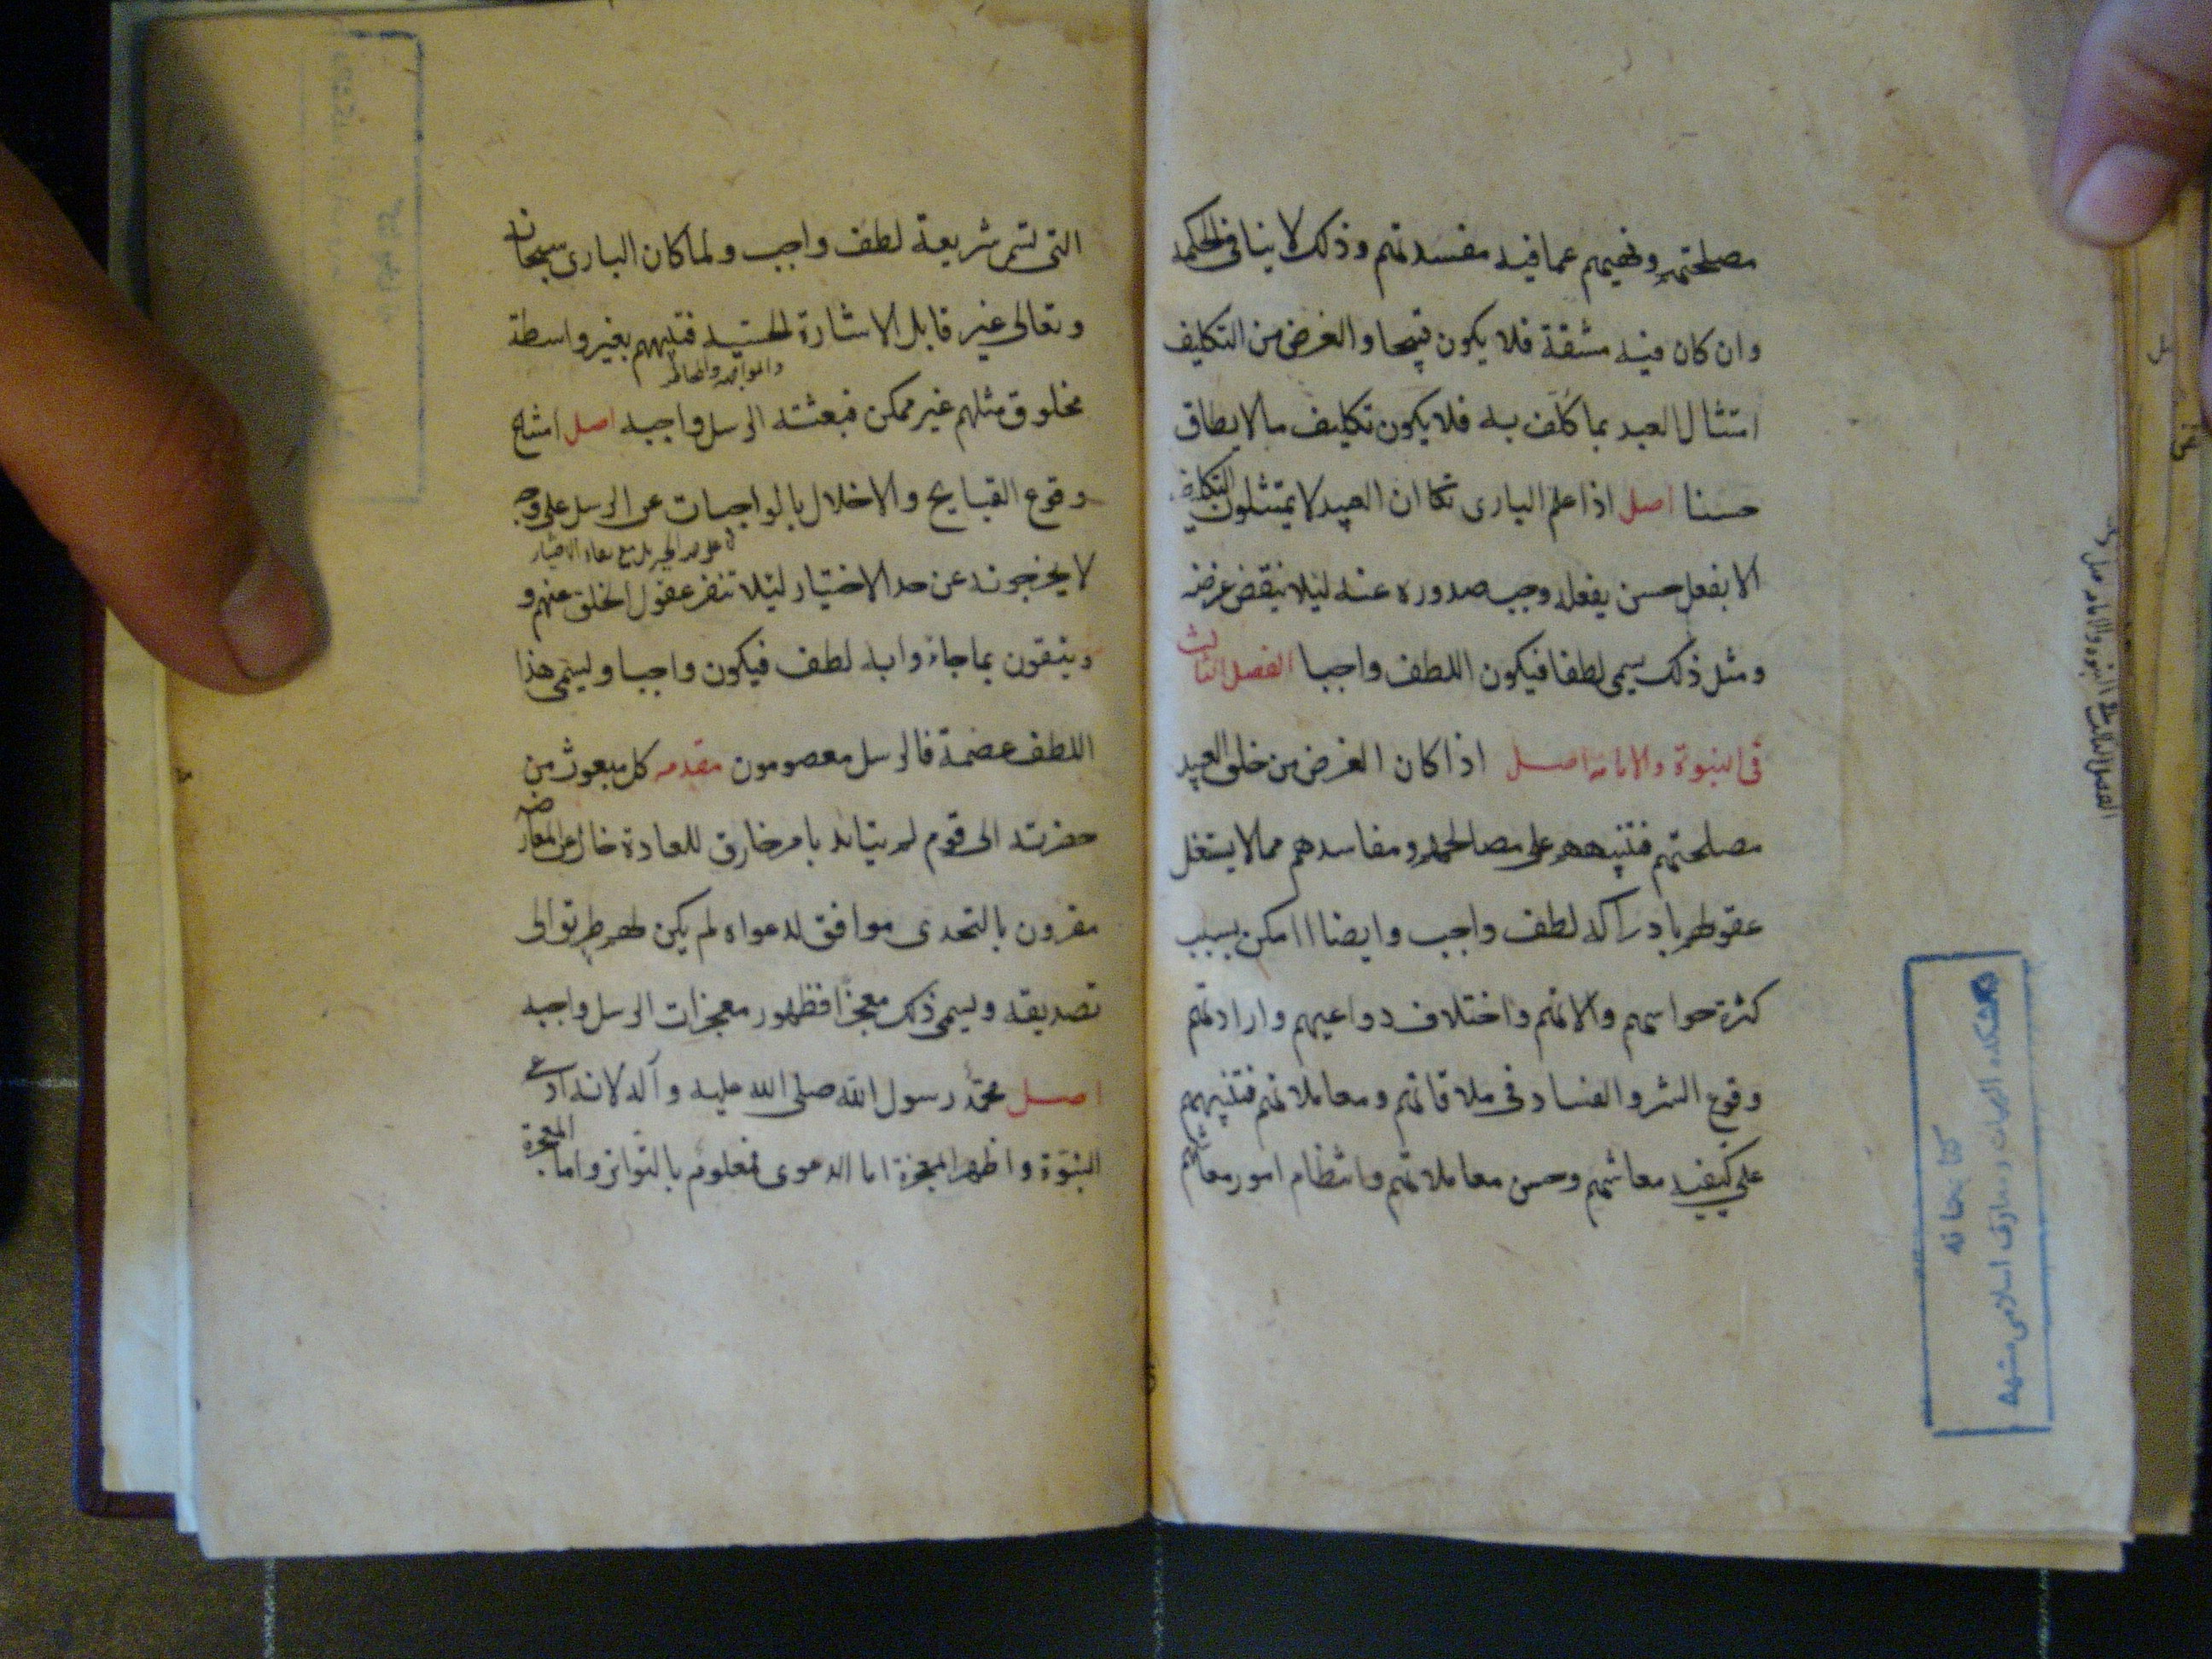 مصلحتهم ونهيهم عما فيه مفسدتهم وذلك لا ينافي الحكمة
وان كان فيه مشقة فلا يكون قبيحا والغرض من التكليف
امتثال العبد بما كلف به فلا يكون تكليف مالا يطاق
حسنا اصل اذا علم الباري تعا ان العبيد لا يمتثلون التكاليف
الا بفعل حسن يفعله وجب صدوره عنه ليلا ينقض غرضه
ومثل ذلك يسمى لطفا فيكون اللطف واجبا الفصل الثالث
في النبوة والامامة اصل اذا كان الغرض من خلق العبيد
مصلحتهم فتنبيههم على مصالحهم ومفاسدهم مما لا يستقل
عقولهم بادراكه لطف واجب وايضا اذا امكن بسبب
كثرة حواسهم والاتهم واختلاف دواعيهم واراداتهم
وقوع الشر والفساد في ملاقاتهم ومعاملاتهم فتنبيههم
على كيفية معاشهم وحسن معاملاتهم وانتظام امور معاشهم
كتابخانه
دانشکده الهیات و معارف اسلامی مشهد
التي تسمى شريعة لطف واجب ولما كان الباري سبحانه
وتعالى غير قابل الاشارة الحسية فتنبيههم بغير واسطة
مخلوق مثلهم غير ممكن فبعثة الرسل واجبه اصل امتناع
وقوع القبايح والاخلال بالواجبات عن الرسل على وجه
لا يخرجونه عن حد الاختيار ليلا تنفر عقول الخلق عنهم و
ويثقون بما جاؤا به لطف فيكون واجبا ويسمى هذا
اللطف عصمة فالرسل معصومون مقدمه كل مبعوث من
حضرته الى قوم لم يتايد بامر خارق للعادة خال عن المعارضه
مقرون بالتحدى موافق لدعواه لم يكن لهم طريق الى
تصديقه ويسمى ذلك معجزا فظهور معجزات الرسل واجبه
اصل محمد رسول الله صلى الله عليه وآله لانه ادعى
النبوة واظهر المعجزة اما الدعوى فمعلوم بالتواتر واما المعجزة